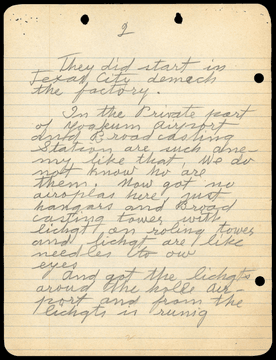 2
They did start in
Texas City demach
the factory.
In the Private part
of Yoakum Airport
and Broad casting
Station are such ene-
my like that, We do
not know ho are
them. Now got no
airoplas here just
hangars and Broad
casting tower with
lichgt on roling tower
and lichgt are like
needles to our
eyes
And got the lichgts
aroud the holle air-
port and from the
lichgts is runig